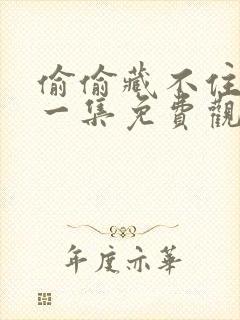 偷偷藏不住
一集免費觀
年度亦華